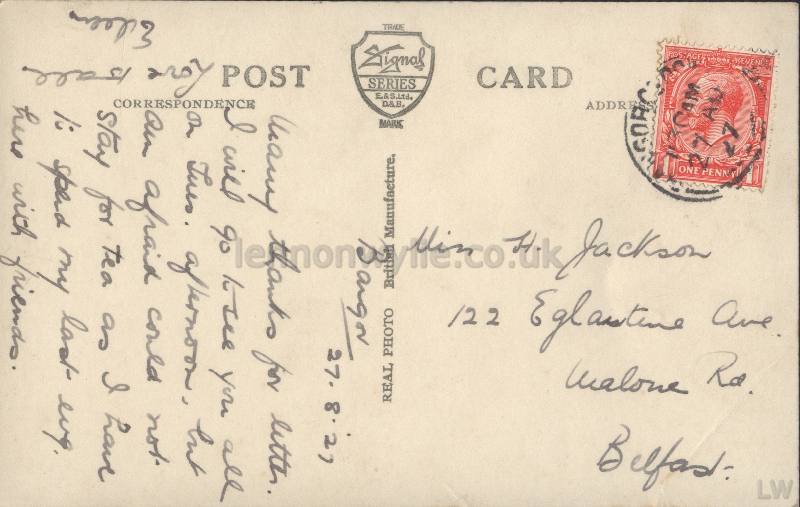 POST CARD
TRADE
Signal
SERIES
E.&S.Ltd.
D&B.
MARK
CORRESPONDENCE
ADDRESS
POSTAGE REVENUE
ONE PENNY
27 AU
27
REAL PHOTO British Manufacture.
Bangor
27.8.27
Many thanks for letter.
I will go to see you all
on Tues. afternoon, but
am afraid could not
stay for tea as I have
to spend my last evg.
here with friends.
Love to all
Eileen
Miss H. Jackson
122 Eglantine Ave.
Malone Rd.
Belfast.
lennonwylie.co.uk
LW